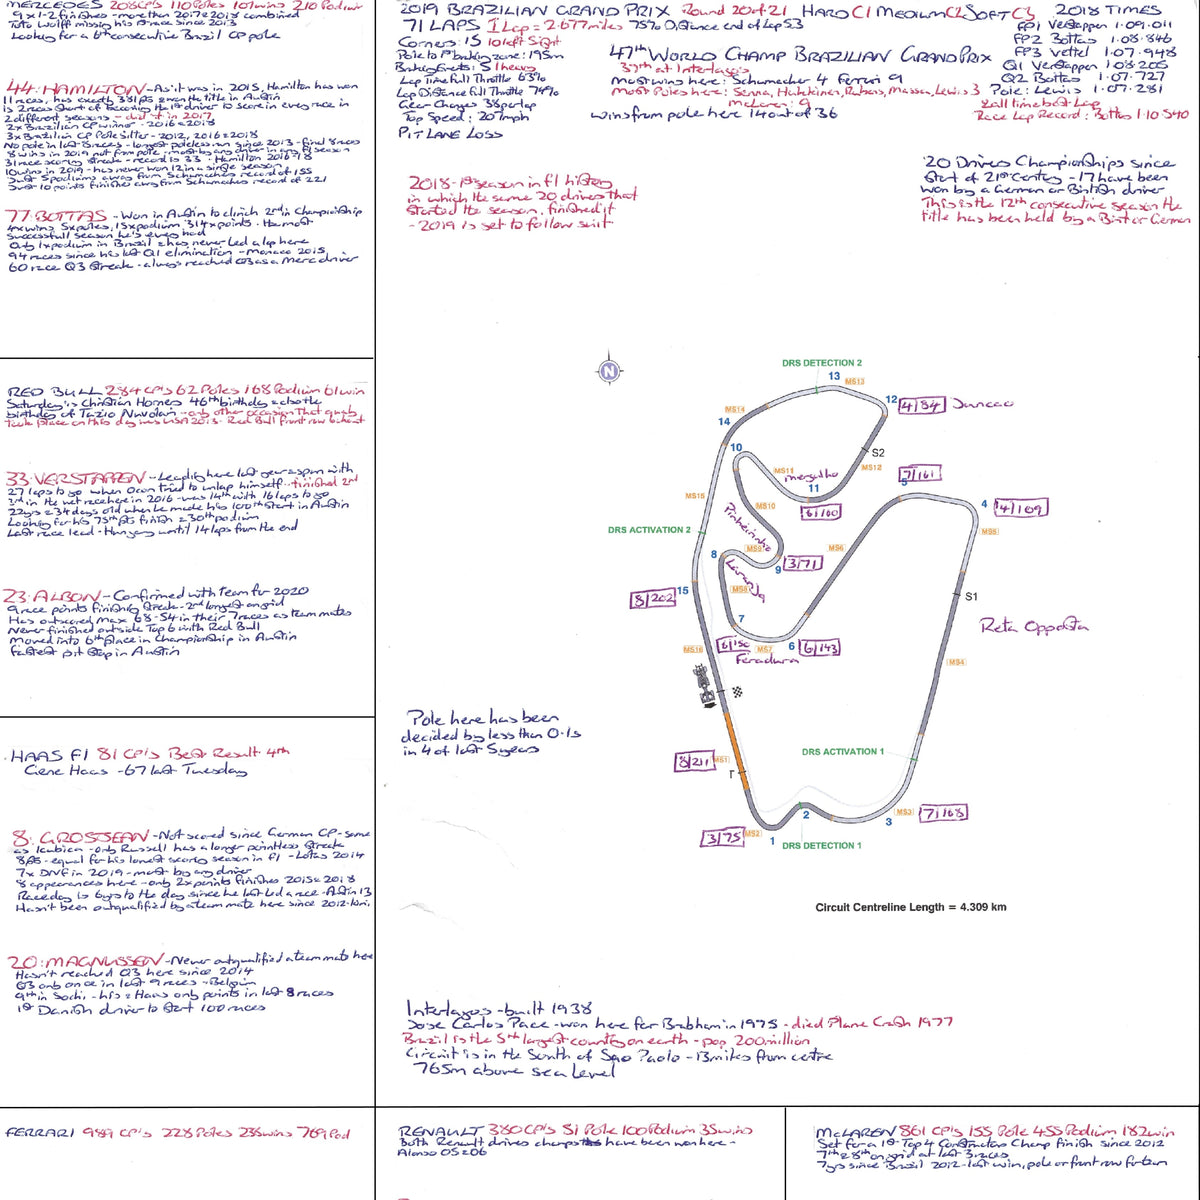 MERCEDES 208GP's 110Poles 101wins 210 Podium
9x1-2 finishes - more than 2017 & 2018 combined
Toto Wolff missing his 1st race since 2013
Looking for a 6th consecutive Brazil GP pole
44: HAMILTON - As it was in 2015, Hamilton has won
11 races, has exactly 381pts & won the title in Austin
is 2 races short of becoming the 1st driver to score in every race in
2 different seasons - did it in 2017
2x Brazilian GP winner - 2016 & 2018
3x Brazilian GP Pole Sitter - 2012, 2016 & 2018
No pole in last 8 races - longest poleless run since 2013 - final 8 races
8 wins in 2019 not from pole - most by any driver in any F1 season
31 race scoring streak - record is 33 - Hamilton 2016-18
10 wins in 2019 - has never won 12 in a single season
Just 5 podiums away from Schumachers record of 155
Just 10 points finishes away from Schumachers record of 221
77: BOTTAS - Won in Austin to clinch 2nd in Championship
4xwins 5xpoles, 15xpodium 314xpoints - the most
successfull season he's ever had
Only 1xpodium in Brazil & has never led a lap here
94 races since his last Q1 elimination - Monaco 2015
60 race Q3 Streak - always reached Q3 as a Merc driver
RED BULL 284GP's 62 Poles 168 Podium 61 win
Saturday is Christian Horners 46th birthday & also the
birthday of Tazio Nuvolari - only other occasion that qualy
took place on this day was USA 2013 - Red Bull front row lockout
33: VERSTAPPEN - Leading here last year & 5pm with
27 laps to go when Ocon tried to unlap himself - finished 2nd
3rd in the wet race here in 2016 - was 14th with 16 laps to go
22yrs & 34days old when he made his 100th start in Austin
Looking for his 75th pts finish & 30th podium
Last race lead - Hungary until 14 laps from the end
23: ALBON - Confirmed with team for 2020
9 race points finishing streak - 2nd longest on grid
Has outscored max 68-54 in their 7 races as team mates
Never finished outside Top 6 with Red Bull
Moved into 6th place in Championship in Austin
fastest pit stop in Austin
HAAS F1 81 GP's Best Result 4th
Gene Haas - 67 last Tuesday
8: GROSJEAN - Not scored since German GP - same
as Kubica - only Russell has a longer pointless streak
8pts - equal for his lowest scoring season in F1 - Lotus 2014
7x DNF in 2019 - most by any driver
8 appearances here - only 2xpoints finishes 2015 & 2018
Raceday is 6yrs to the day since he last led a race - Austin 13
Hasn't been outqualified by a team mate here since 2012 - Kimi
20: MAGNUSSEN - Never outqualified a team mate here
Hasn't reached Q3 here since 2014
Q3 only once in last 9 races - Belgium
9th in Sochi - his & Haas only points in last 8 races
1st Danish driver to start 100 races
FERRARI 989 GP's 228 Poles 238wins 769 Pod
2019 BRAZILIAN GRAND PRIX Round 20 of 21 HARD C1 MEDIUM C2 SOFT C3
71 LAPS 1 Lap = 2.677miles 75% Distance end of Lap 53
Corners: 15 10 left 5 right
Pole to 1st braking zone: 195m
Braking Events: 5 1 heavy
Lap Time Full Throttle 63%
Lap Distance Full Throttle 74%
Gear Changes 38 per lap
Top Speed: 207mph
PIT LANE LOSS
47th WORLD CHAMP BRAZILIAN GRAND PRIX
37th at Interlagos
Most wins here: Schumacher 4 Ferrari 9
Most Poles here: Senna, Hakkinen, Rubens, Massa, Lewis 3
McLaren: 9
wins from pole here 14 out of 36
2018 TIMES
FP1 Verstappen 1.09.011
FP2 Bottas 1.08.846
FP3 Vettel 1.07.948
Q1 Verstappen 1.08.205
Q2 Bottas 1.07.727
Pole: Lewis 1.07.281
& all time best Lap
Race Lap Record: Bottas 1.10.540
2018 - 1st season in F1 history
in which the same 20 drivers that
started the season, finished it
- 2019 is set to follow suit
20 Drivers Championships since
start of 21st Century - 17 have been
won by a German or British driver
This is the 12th consecutive season the
title has been held by a Brit or German
N
DRS DETECTION 2
13
MS13
12
4/84 Juncao
MS14
14
10
S2
MS12
MS11
mergulho
11
6/100
7/161
5
4
4/109
MS15
MS10
MS5
Pinheirinho
DRS ACTIVATION 2
MS6
8
MS9
9
3/71
Laranja
MS8
15
8/202
S1
7
Reta Opposta
6/150
MS7
6
6/143
Feradura
MS16
MS4
Pole here has been
decided by less than 0.1s
in 4 of last 5 years
DRS ACTIVATION 1
8/211
MS1
T
MS3
7/168
2
3
3/75
MS2
1
DRS DETECTION 1
Circuit Centreline Length = 4.309 km
Interlagos - built 1938
Jose Carlos Pace - won here for Brabham in 1975 - died Plane Crash 1977
Brazil is the 5th largest country on earth - pop 200million
Circuit is in the South of Sao Paolo - 13miles from centre
765m above sea level
RENAULT 380 GP's 51 Pole 100 Podium 35wins
Both Renault drivers champs have been won here -
Alonso 05 & 06
McLAREN 861 GP's 155 Pole 485 Podium 182 win
Set for a 1st Top 4 Constructors Champ finish since 2012
7th & 8th on grid at last 3 races
7yrs since Brazil 2012 - last win, pole or front row for team